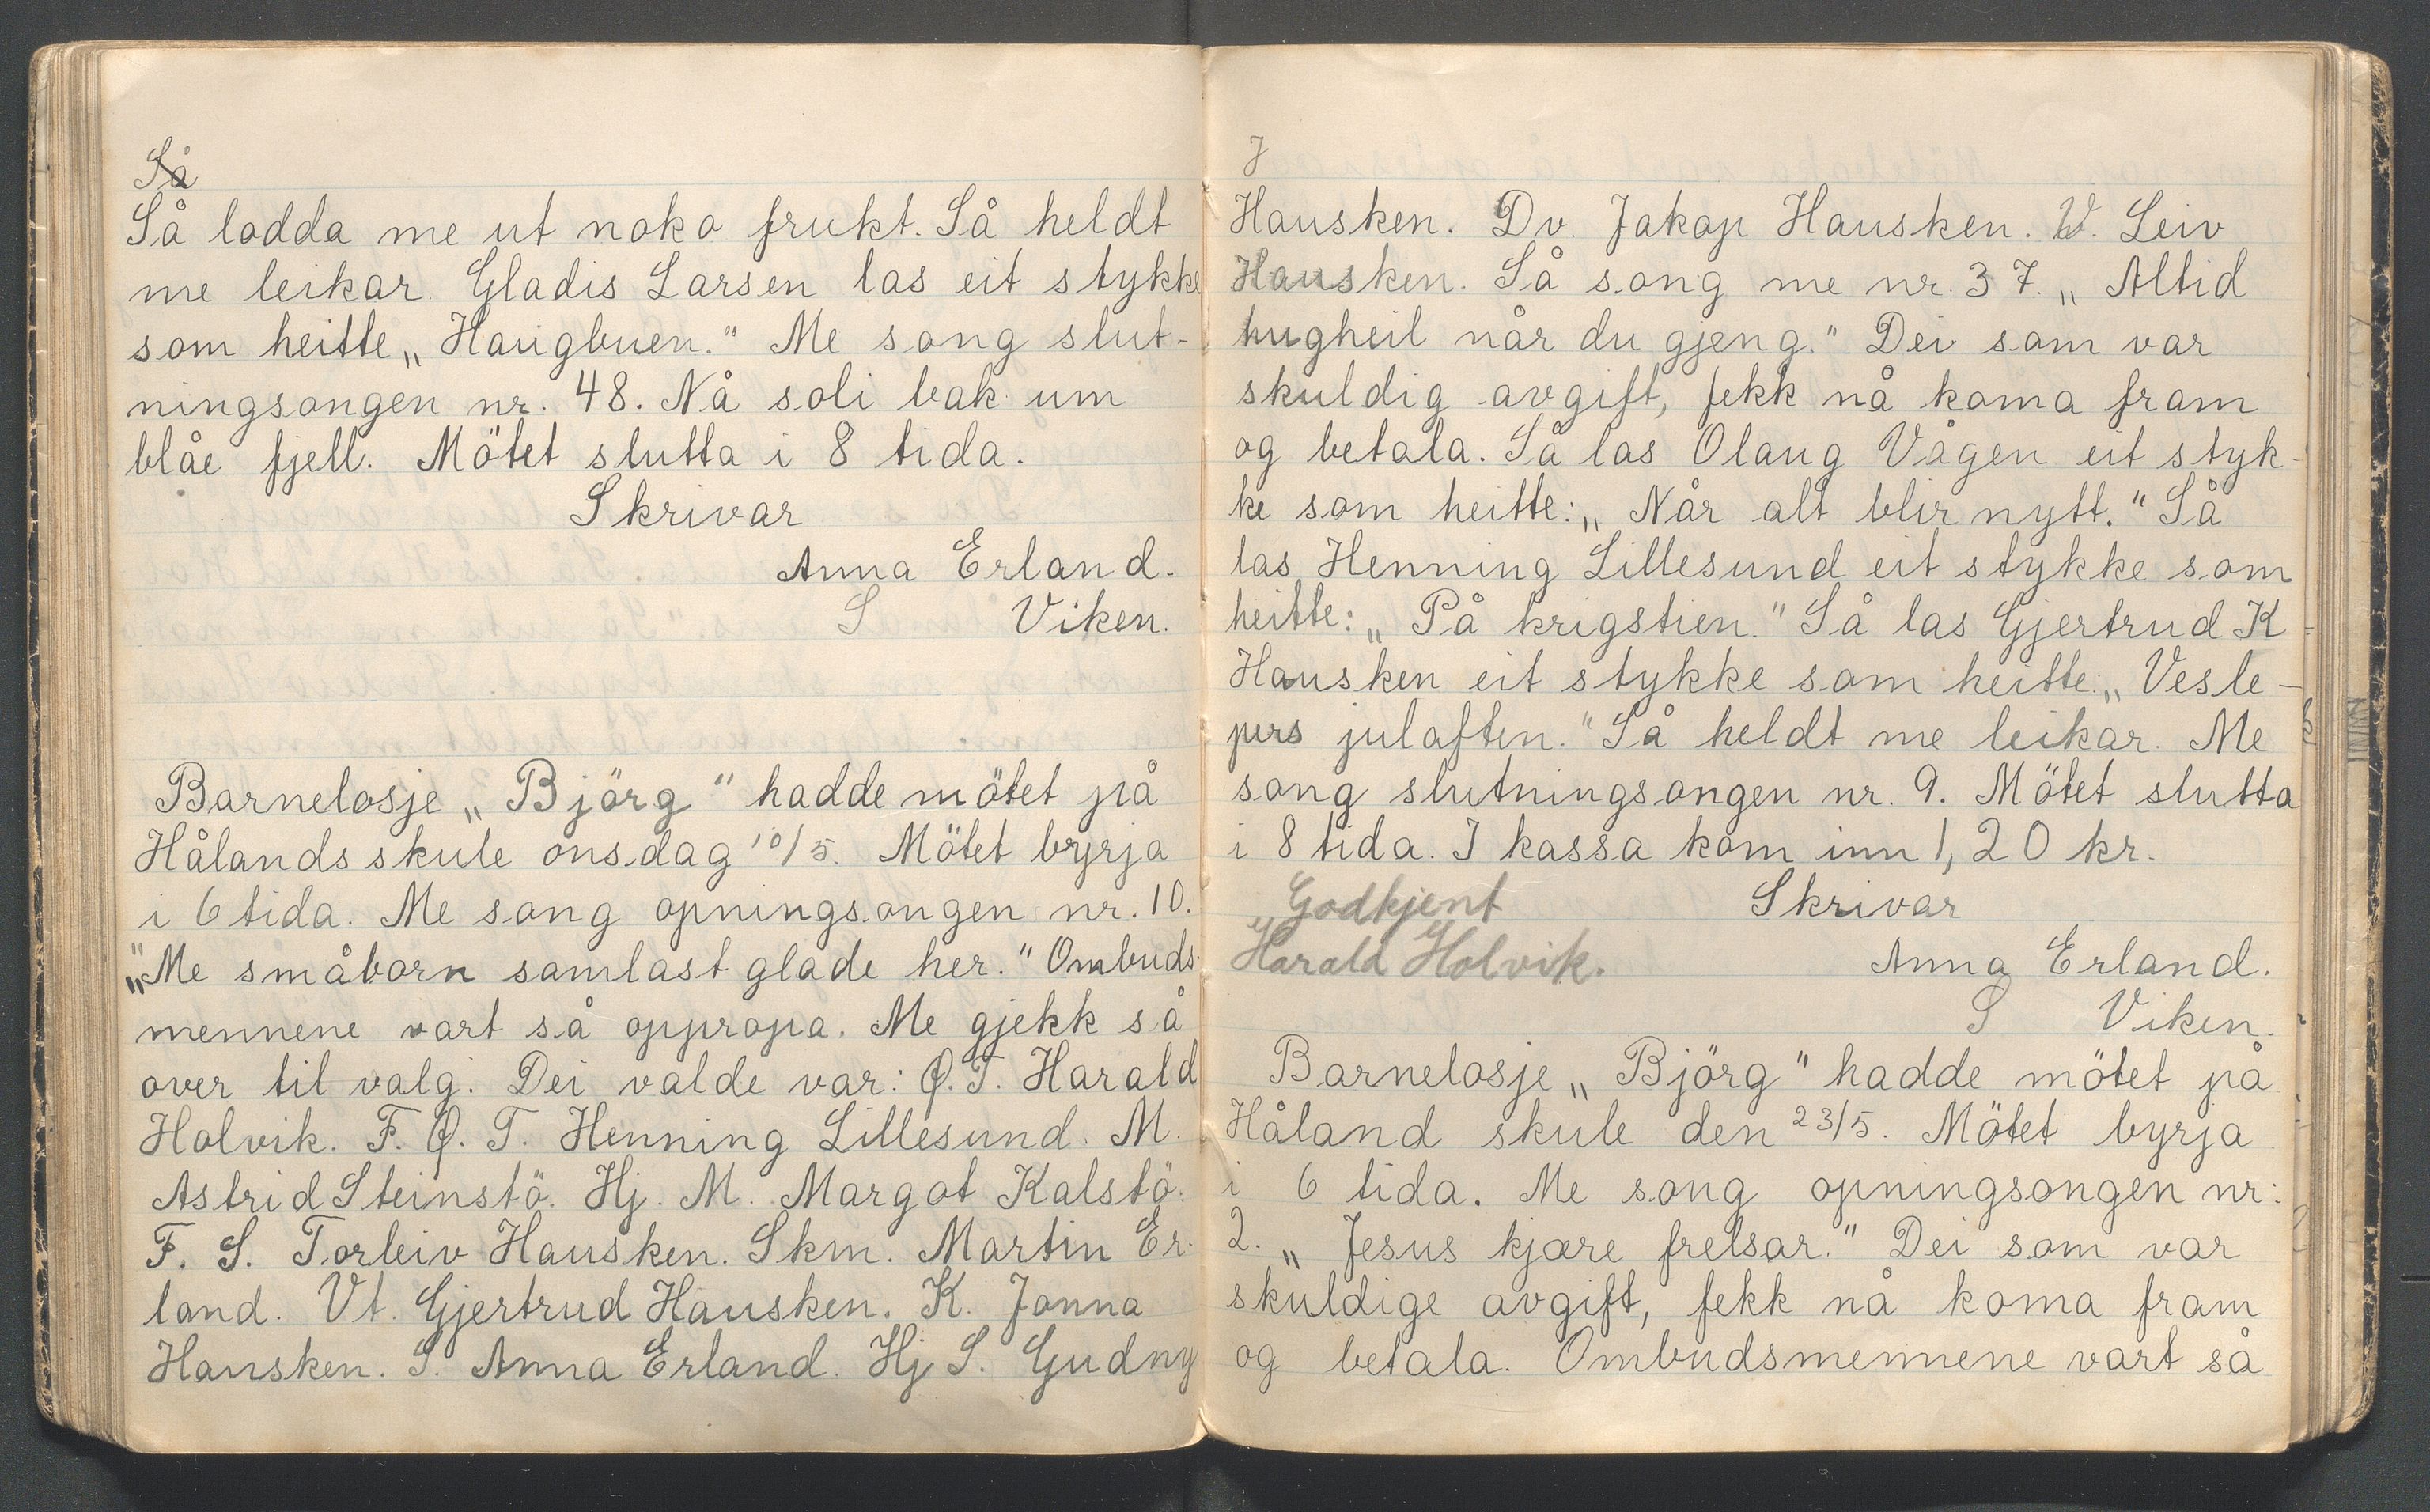 Så
Så lodda me ut noko frukt. Så heldt
me leikar. Gladis Larsen las eit stykke
som heitte „Haugbuen." Me song slut-
ningsongen nr. 48. Nå soli bak um
blåe fjell. Mötet slutta i 8 tida.
Skrivar
Anna Erland.
S Viken.
Barnelosje „Björg" hadde mötet på
Hålands skule onsdag 10/5. Mötet byrja
i 6 tida. Me song opningsongen nr. 10.
„Me småborn samlast glade her." Ombuds-
mennene vart så oppropa. Me gjekk så
over til valg. Dei valde var: Ø.T. Harald
Holvik. F. Ø. T. Henning Lillesund. M.
Astrid Steinstö. Hj. M. Margot Kalstö.
F. S. Torleiv Hausken. Skm. Martin Er-
land. Vt. Gjertrud Hausken. K. Janna
Hausken. S. Anna Erland. Hj S. Gudny
J
Hausken. Dv. Jakop Hausken. V. Leiv
Hausken. Så song me nr. 37. „Altid
hugheil når du gjeng." Dei som var
skuldig avgift, fekk nå koma fram
og betala. Så las Olaug Vågen eit styk-
ke som heitte: „Når alt blir nytt." Så
las Henning Lillesund eit stykke som
heitte: „På krigstien." Så las Gjertrud K
Hausken eit stykke som heitte „Vesle-
pers julaften." Så heldt me leikar. Me
song slutningsongen nr. 9. Mötet slutta
i 8 tida. I kassa kom inn 1,20 kr.
Godkjent Skrivar
Harald Holvik. Anna Erland.
S Viken.
Barnelosje „Björg" hadde mötet på
Håland skule den 23/5. Mötet byrja
i 6 tida. Me song opningsongen nr:
2. „Jesus kjære frelsar." Dei som var
skuldige avgift, fekk nå koma fram
og betala. Ombudsmennene vart så